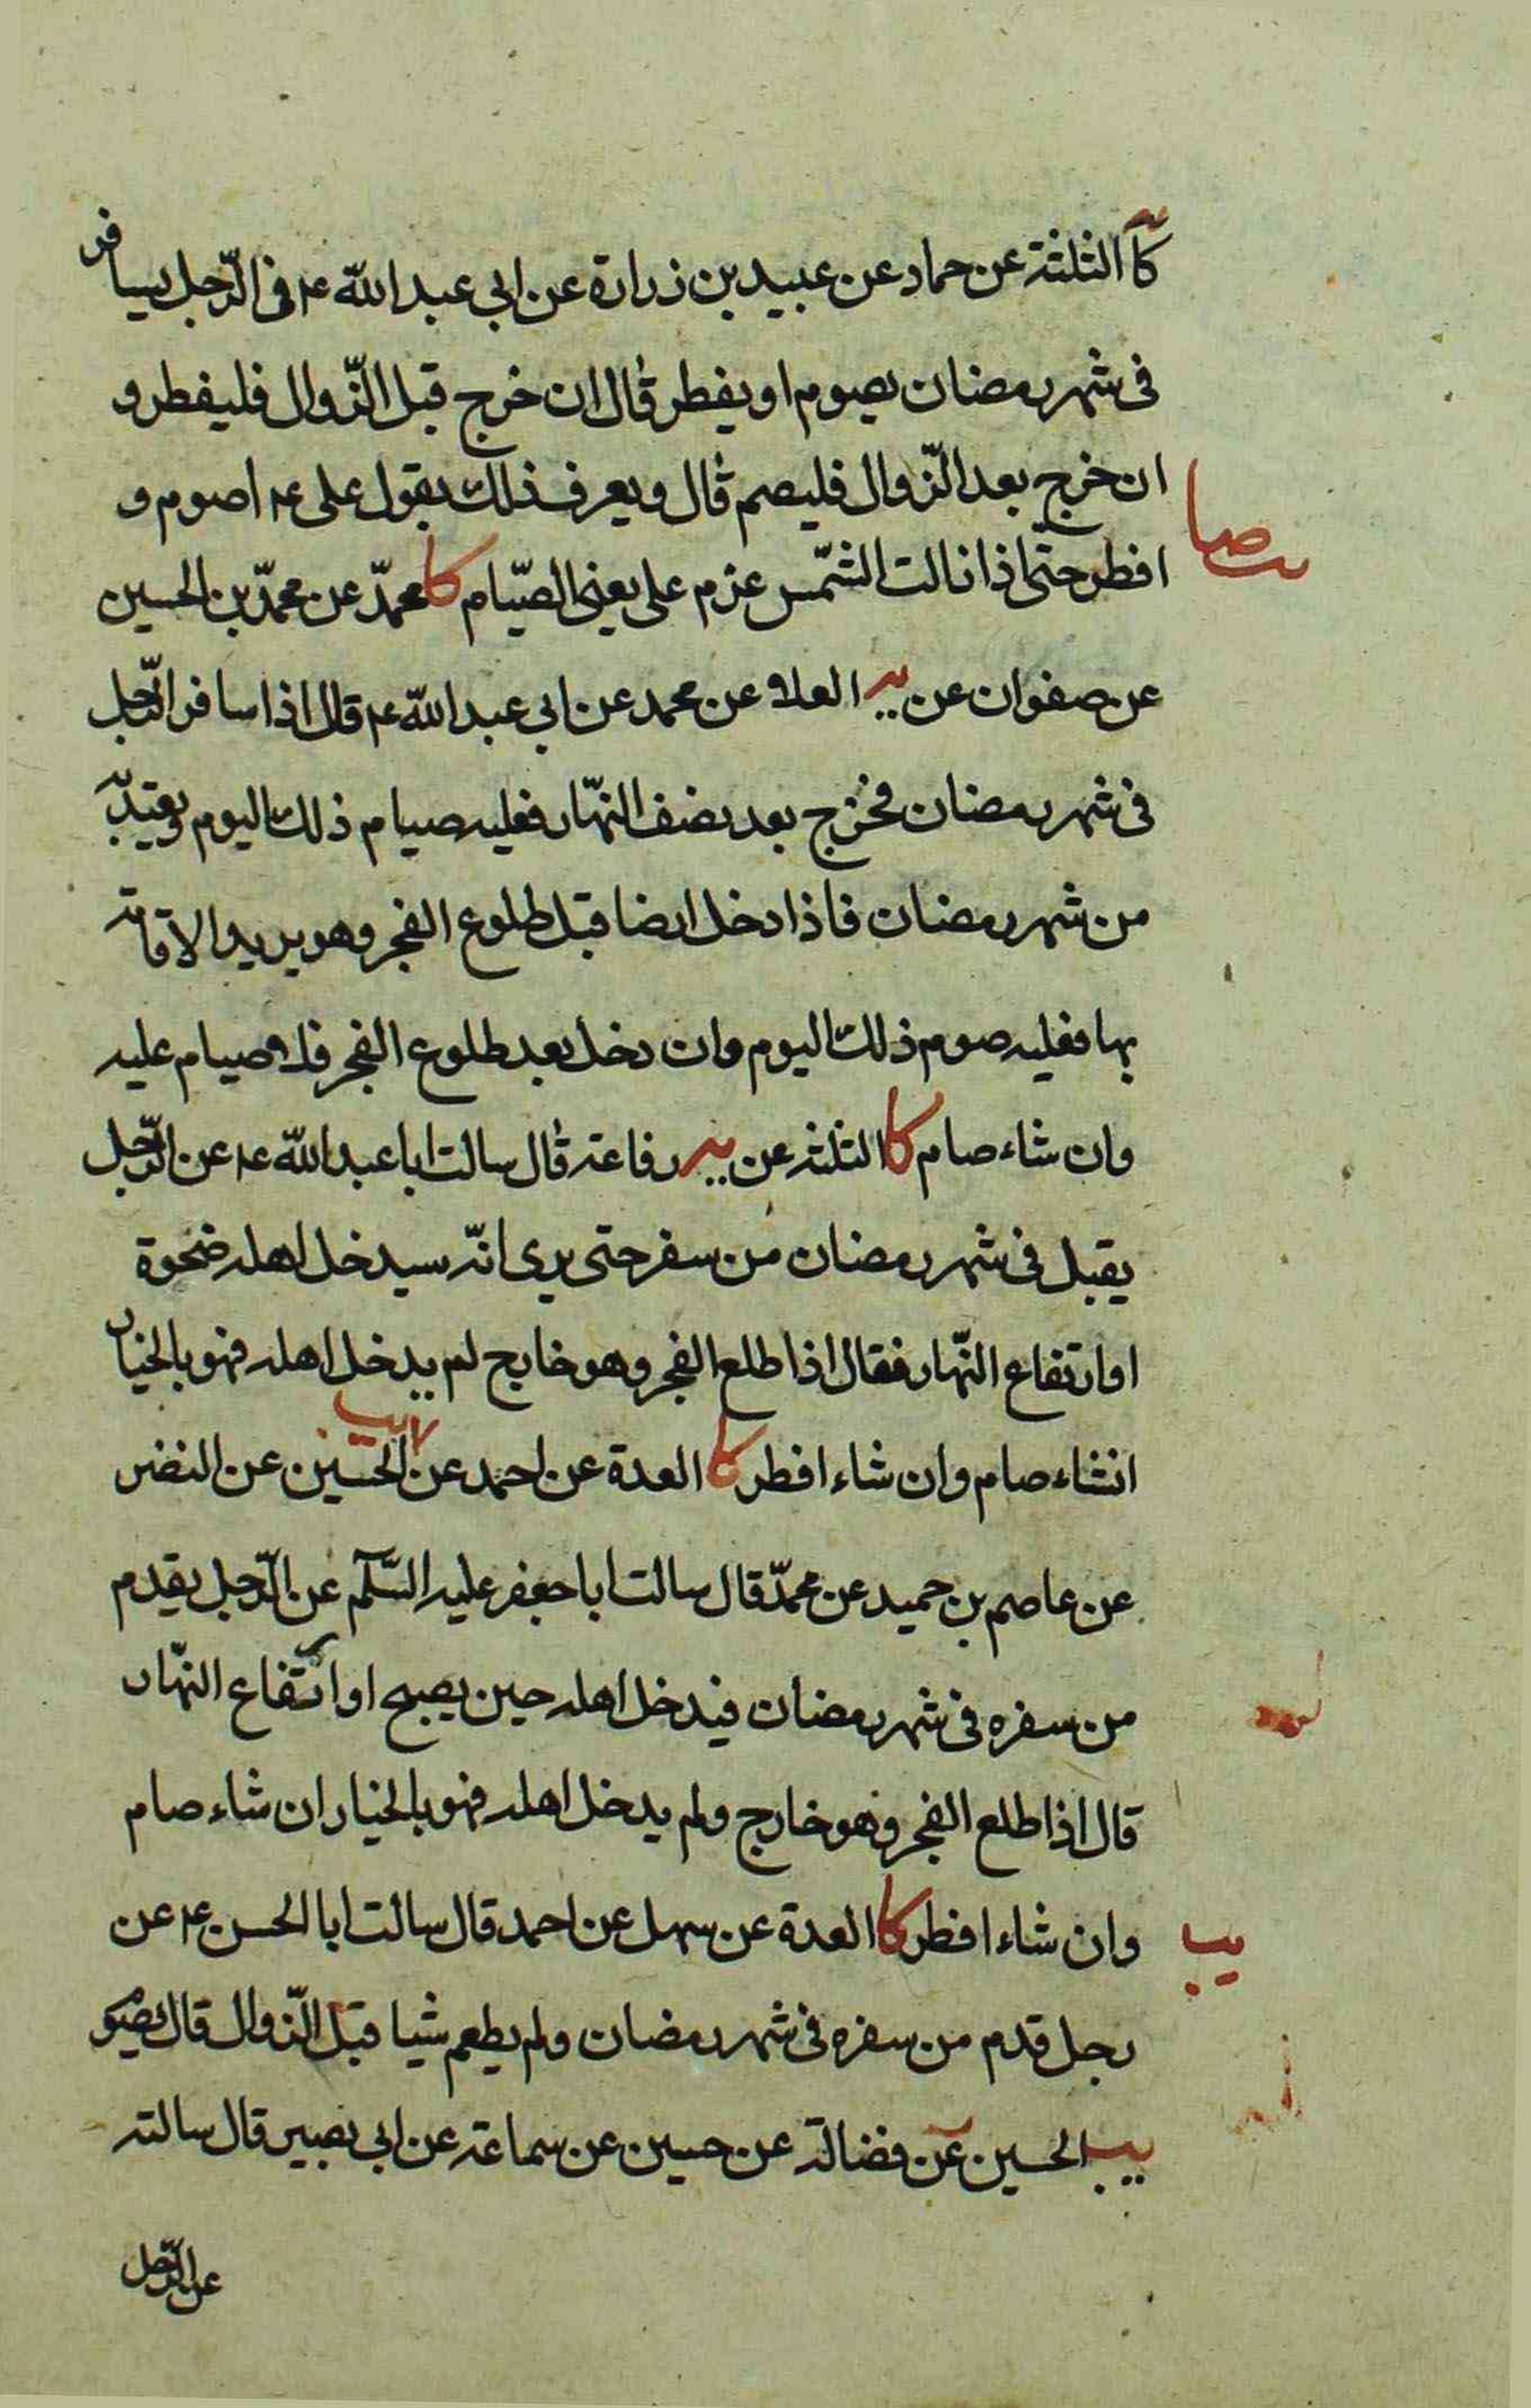 كا الثلثة عن حماد عن عبيد بن زرارة عن ابي عبد الله ع في الرّجل يسافر
في شهر رمضان يصوم او يفطر قال ان خرج قبل الزّوال فليفطر و
ان خرج بعد الزّوال فليصم قال ويعرف ذلك بقول علي ع اصوم و
افطر حتّى اذا زالت الشّمس عزم علي يعني الصّيام كا محمّد عن محمّد بن الحسين
عن صفوان عن يه العلا عن محمد عن ابي عبد الله ع قال اذا سافر الرّجل
في شهر رمضان فخرج بعد نصف النّهار فعليه صيام ذلك اليوم ويعتدّ به
من شهر رمضان فاذا دخل ارضا قبل طلوع الفجر وهو يريد الاقامة
بها فعليه صوم ذلك اليوم وان دخل بعد طلوع الفجر فلا صيام عليه
وان شاء صام كا الثلثة عن يه رفاعة قال سالت ابا عبد الله ع عن الرّجل
يقبل في شهر رمضان من سفر حتى يرى انّه سيدخل اهله ضحوة
او ارتفاع النّهار فقال اذا طلع الفجر وهو خارج لم يدخل اهله فهو بالخيار
انشاء صام وان شاء افطر كا العدة عن احمد عن يب الحسين عن النضر
عن عاصم بن حميد عن محمّد قال سالت ابا جعفر عليه السّلم عن الرّجل يقدم
من سفره في شهر رمضان فيدخل اهله حين يصبح او ارتفاع النّهار
قال اذا طلع الفجر وهو خارج ولم يدخل اهله فهو بالخيار ان شاء صام
وان شاء افطر كا العدة عن سهل عن احمد قال سالت ابا الحسن ع عن
يب
رجل قدم من سفره في شهر رمضان ولم يطعم شيا قبل الزّوال قال يصوم
يب الحسين عن فضالة عن حسين عن سماعة عن ابي بصير قال سالته
عن الرّجل